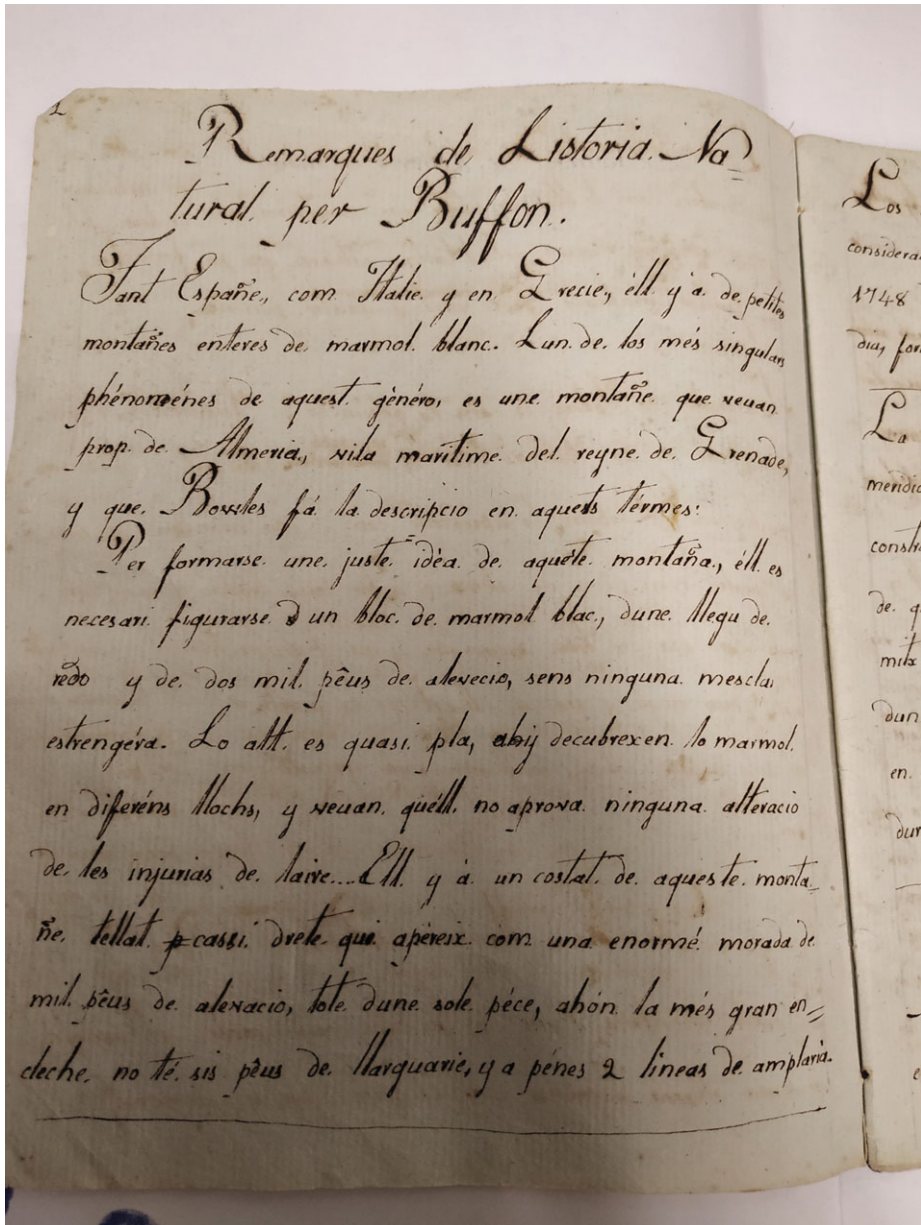 1
Remarques de Listoria Na=
tural per Buffon.
Tant España, com Italie y en Grecie, éll y a de petites
montañes enteres de marmol blanc. Lun de los més singulars
phénoménes de aquest género, es une montañe que veuan
prop de Almeria, vila maritime del reyne de Grenade,
y que Bowles fá la descripcio en aquets térmes:
Per formarse une juste idéa de aquéte montaña, éll es
necesari figurarse un bloc de marmol blac, dune llegu de
redó y de dos mil pêus de alevecio, sens ninguna mescla
estrengéra. Lo alt es quasi pla, ahij decubrexen lo marmol
en diferéns llochs, y veuan quéll no aprova ninguna alteracio
de les injurias de laire... Ell y á un costat de aqueste monta_
ñe tellat cassi drete qui apereix com una enormé morada de
mil pêus de alevacio, tote dune sole péce, ahón la més gran en=
cleche no té sis pêus de llarguarie, y a pénes 2 lineas de amplaria.
Los
considera
1748
dia, for
La
meridio
constr
de q
mila
dun
en
dur